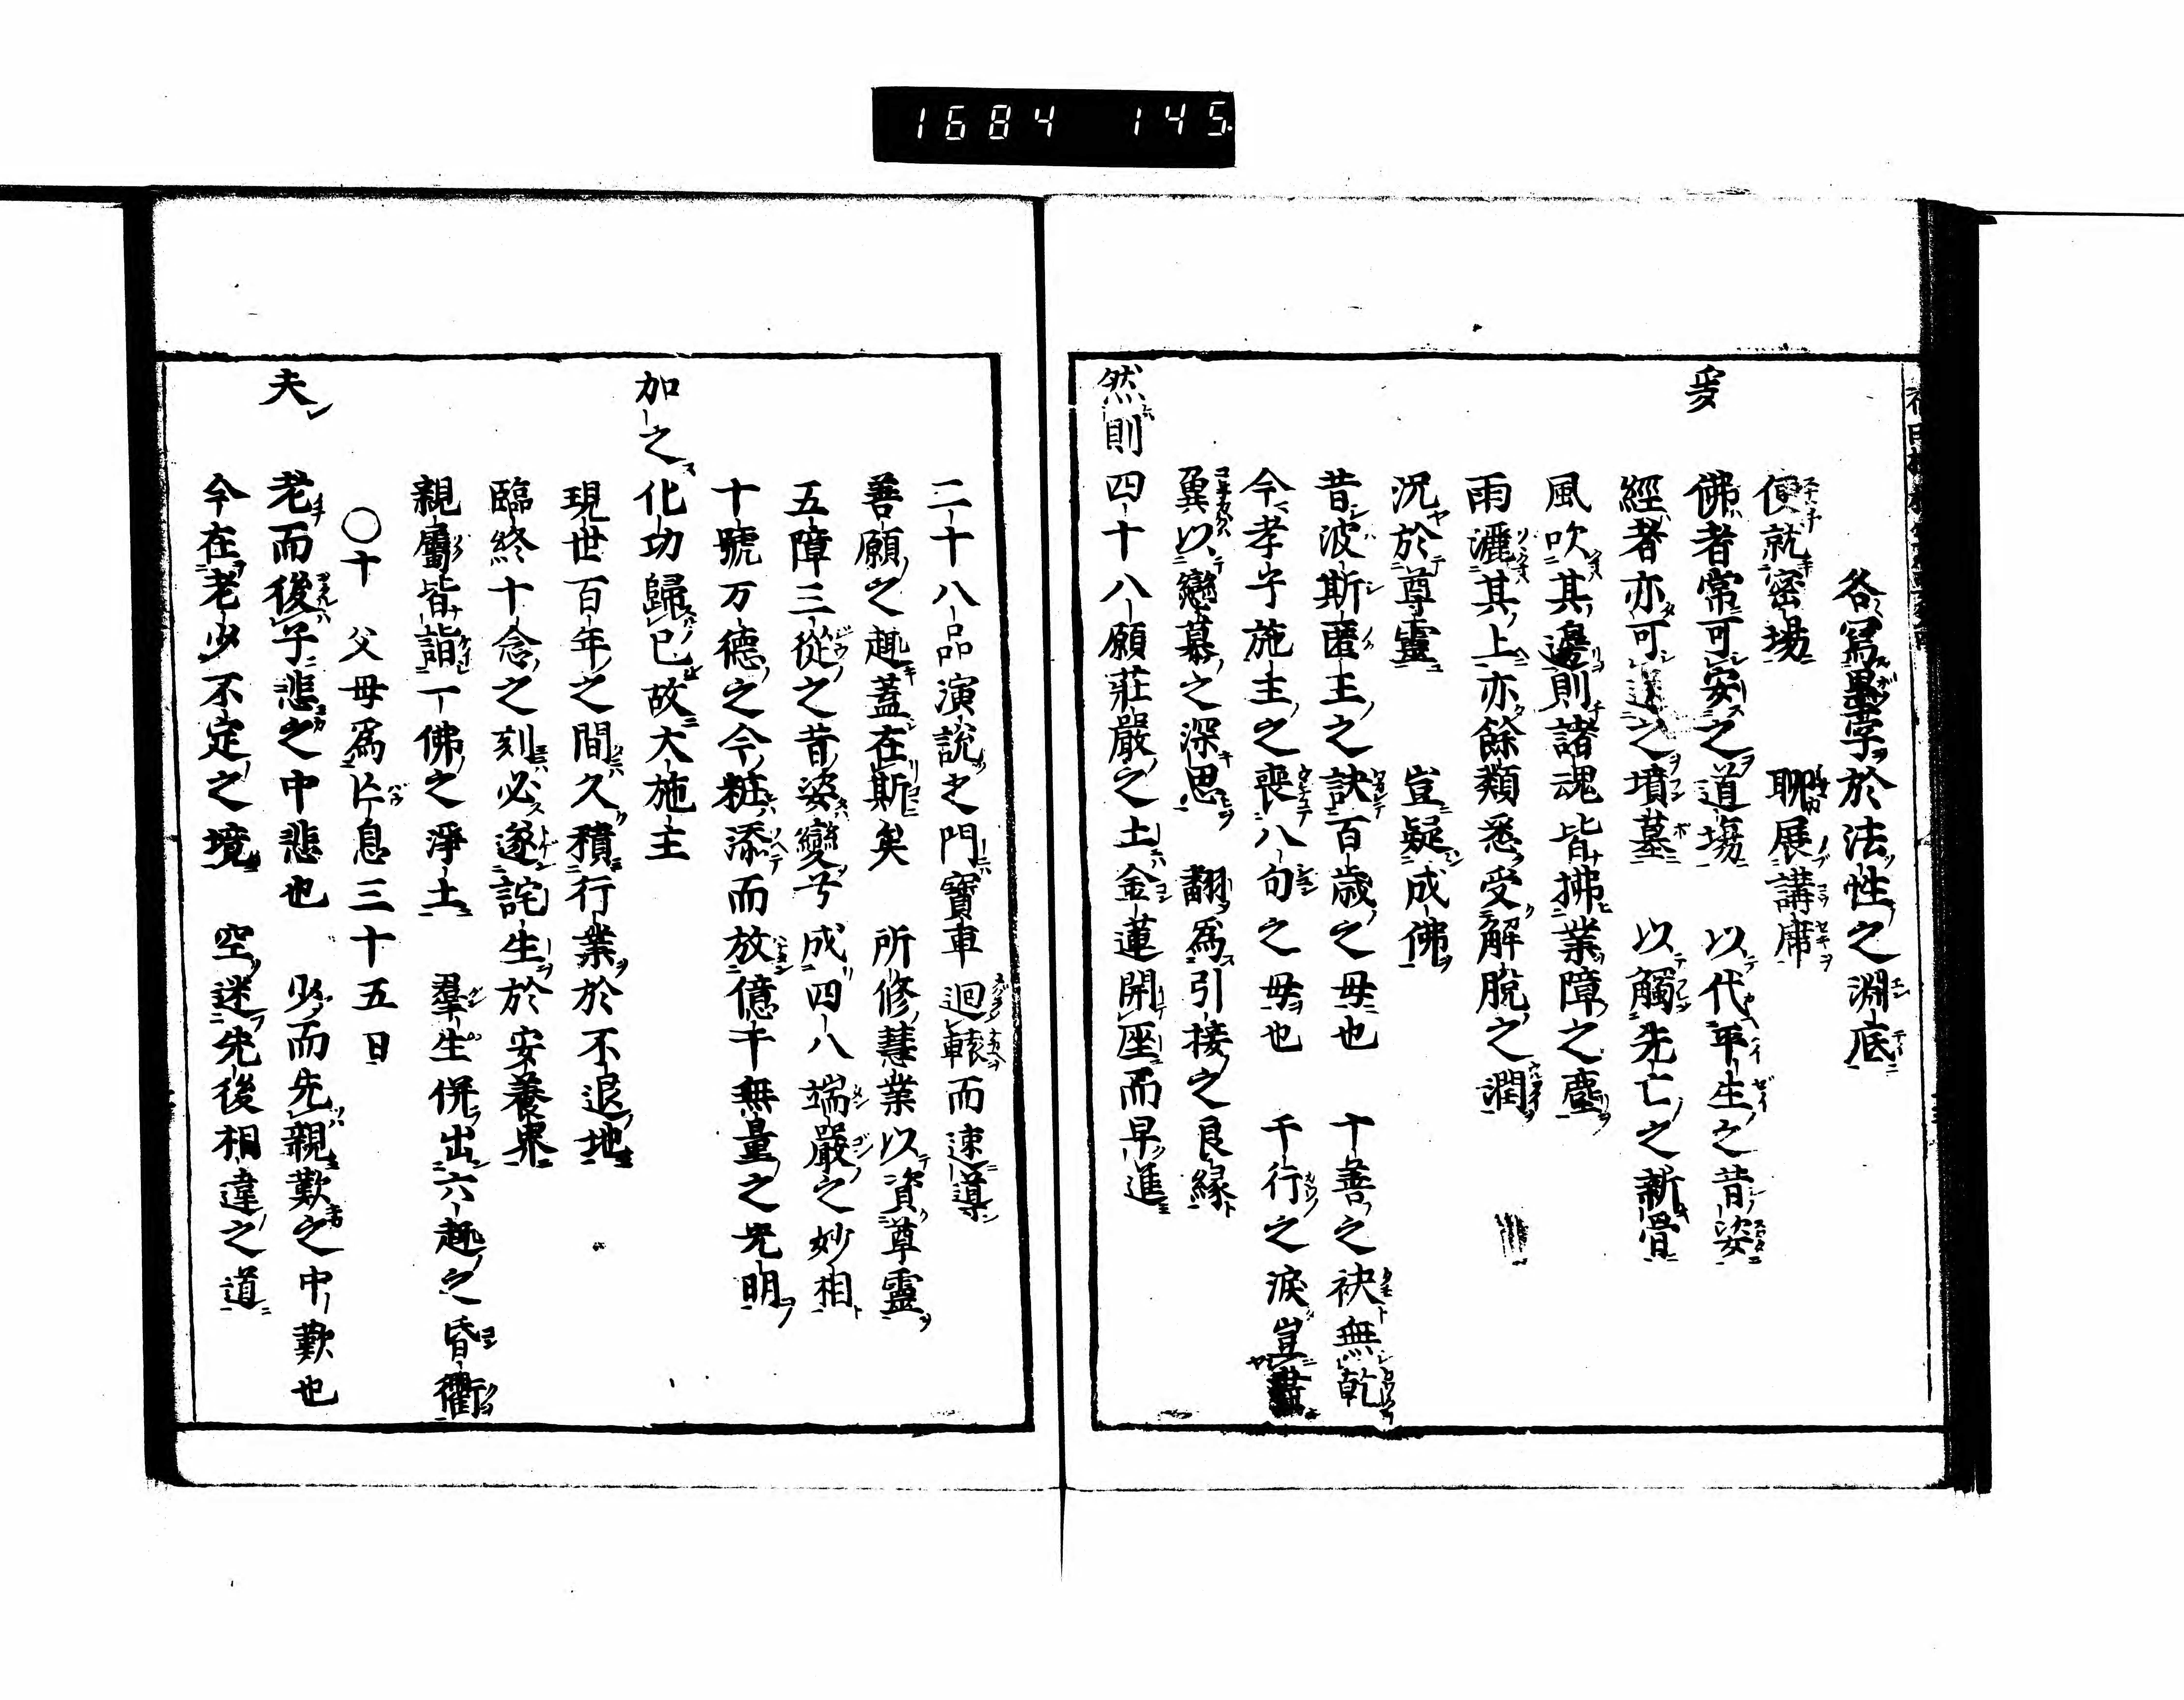 1684 145.
各寫墨字於法性之淵底
便就密場 聊展講席
爰 佛者常可安之道場 以代平生之昔姿
經者亦可送之墳墓 以觸先亡之新骨
風吹其邊則諸魂皆拂業障之塵
雨灑其上亦餘類悉受解脫之潤
況於尊靈 豈疑成佛
昔波斯匿王之訣百歳之母也 十善之袂無乾
今孝子施主之喪八旬之母也 千行之淚豈盡
冀以戀慕之深思 翻爲引接之良緣
然則 四十八願莊嚴之土金蓮開座而早進
二十八品演說之門寶車迴轅而速導
善願之趣蓋在斯矣 所修慧業以資尊靈
五障三從之昔姿變兮成四八端嚴之妙相
十號万德之今粧添而放億千無量之光明
加之 化功歸已故大施主
現世百年之間久積行業於不退地
臨終十念之刻必遂詫生於安養界
親屬皆詣一佛之淨土 羣生併出六趣之昏衢
〇十 父母爲亡息三十五日
夫 老而後子悲之中悲也 少而先親歎之中歎也
今在老少不定之境 空迷先後相違之道